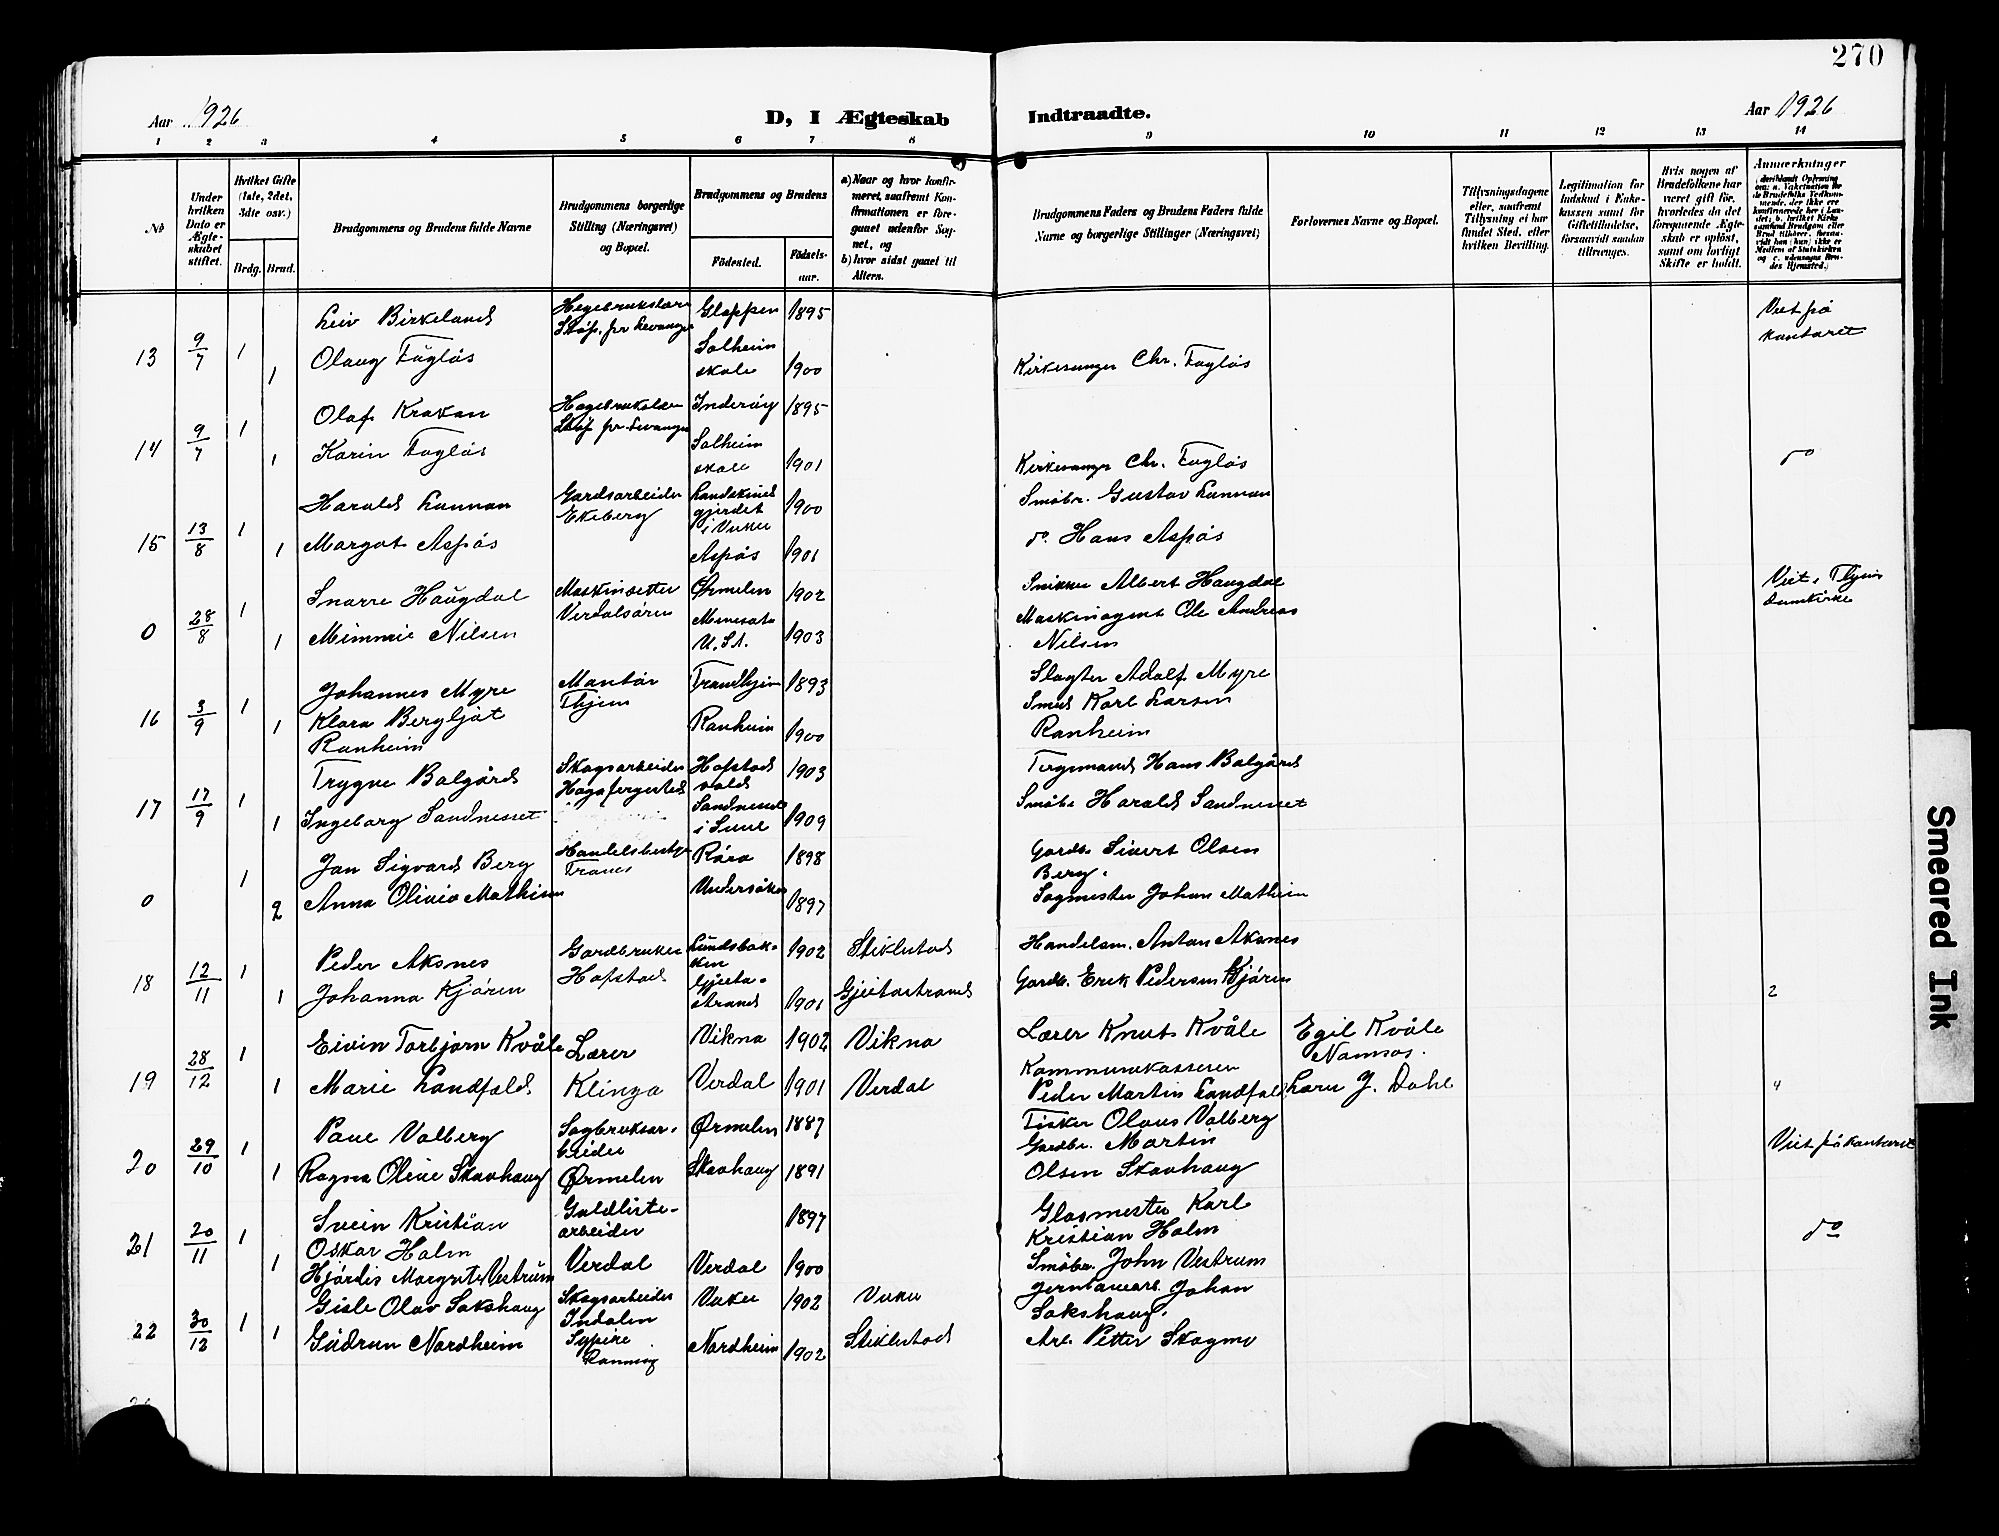 270
Aar 1926
D, I Ægteskab
Indtraadte.
Aar 1926
1 2 3 4 5 6 7 8 9 10 11 12 13 14
No
Under hvilken Dato er Ægteskabet stiftet.
Hvilket Gifte (1ste, 2det, 3die osv.)
Brdg. Brud.
Brudgommens og Brudens fulde Navne
Brudgommens borgerlige Stilling (Næringsvei) og Bopæl.
Brudgommens og Brudens
Födested.
Födselsaar.
a) Naar og hvor konfirmeret, saafremt Konfirmationen er foregaaet udenfor Sognet, og
b) hvor sidst gaaet til Alters.
Brudgommens Faders og Brudens Faders fulde Navne og borgerlige Stillinger (Næringsvei)
Forlovernes Navne og Bopæl.
Tillysningsdagene eller, saafremt Tillysning ei har fundet Sted, efter hvilken Bevilling.
Legitimation for Indskud i Enkekassen samt for Giftetilladelse, forsaavidt saadan tiltrænges.
Hvis nogen af Brudefolkene har været gift för, hvorledes da det foregaaende Ægteskab er oplöst, samt om lovligt Skifte er holdt.
Anmærkninger
13 9/7 1 Leiv Birkeland Gloppen 1895 Viet på kontoret
1 Olaug Fugløs Solheim skole 1900 Kirkesanger Chr. Fagløs
14 9/7 1 Olaf Krokan Inderøy 1895
1 Karin Fagløs Solheim skole 1901 Kirkesanger Chr. Fagløs do
15 13/8 1 Harald Lunnan Gardsarbeider Ekeberg i Vuku 1900 Småbr. Gustav Lunnan
1 Margot Aspås Aspås 1901 do. Hans Aspås
0 28/8 1 Snorre Haugdal Maskinsetter Verdalsøren Ørmelen 1902 Snikker Albert Haugdal Viet i Thjems Domkirke
1 Mimmie Nilsen U.St. 1903 Maskinagent Ole Andreas Nilsen
16 3/9 1 Johannes Myre Montør Thjem Trondhjem 1893 Slagter Adolf Myre
1 Klara Bergljot Ranheim Ranheim 1900 Smed Karl Larsen Ranheim
17 17/9 1 Trygve Balgård Skogsarbeider Hofstad 1903 Hans Balgård
1 Ingeborg Sandnesset 1909 Småbr Harald Sandnesset
0 1 Jon Sigvard Berg Røra 1898 Gardbr. Sivert Olsen Berg.
2 Anna Olivia Mathisen Undersåker 1897 Sagmester Johan Mathisen
18 12/11 1 Peder Aksnes Gardbruker Hofstad Lundsbakken 1902 Stiklestad Handelsm. Anton Aksnes
1 Johanna Kjären Gjeitastrand 1901 Gjeitastrand Gardbr. Erik Pedersen Kjären 2
19 28/12 1 Eivin Torbjørn Kvåle Lærer Vikna 1902 Vikna Lærer Knut Kvåle Egil Kvåle Namsos.
1 Marie Landfald Klinga Verdal 1901 Verdal Kommunekasserer Peder Martin Landfald Lars J. Dahl 4
20 29/10 1 Paul Valberg Sagbruksarbeider Ørmelen 1887 Fisker Olaus Valberg Viet på kontoret
1 Ragna Olive Skavhaug Ørmelen Skavhaug 1891 Gardbr. Martin Olsen Skavhaug
21 20/11 1 Svein Kristian Oskar Holm Guldlistearbeider 1897 Glasmester Karl Kristian Holm do
1 Hjördis Margrete Vestrum Verdal Verdal 1900 Småbr. John Vestrum
22 30/12 1 Gisle Olav Sakshaug Skogsarbeider Indalen Vuku 1902 Vuku Johan Sakshaug.
1 Gudrun Nordheim Nordheim 1902 Stiklestad Arb. Petter Skogmo
Smeared Ink